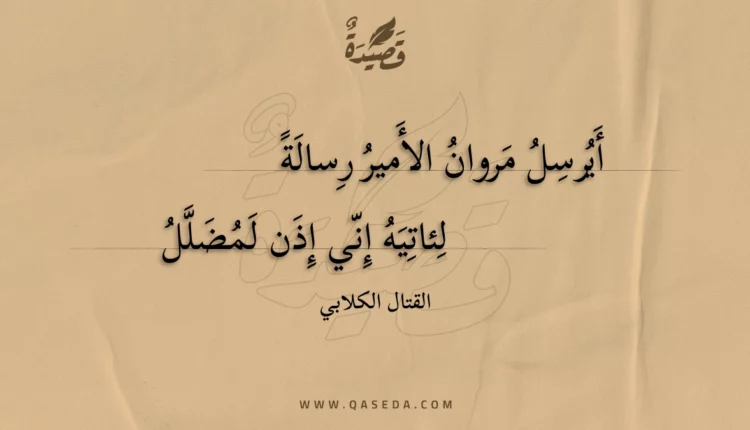 قَصِيدَةٌ
أَيُرسِلُ مَروانُ الأَميرُ رِسالَةً
لِئاتِيَهُ إِنّي إِذَن لَمُضَلَّلُ
القتال الكلابي
WWW.QASEDA.COM